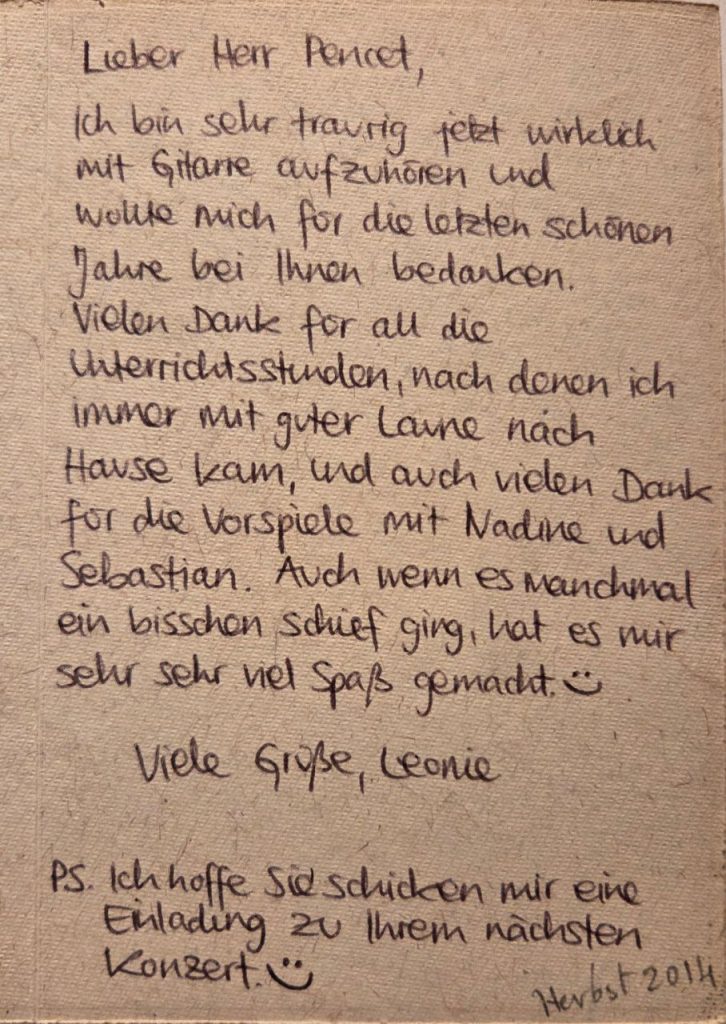 Lieber Herr Pencet,
Ich bin sehr traurig jetzt wirklich
mit Gitarre aufzuhören und
wollte mich für die letzten schönen
Jahre bei Ihnen bedanken.
Vielen Dank für all die
Unterrichtsstunden, nach denen ich
immer mit guter Laune nach
Hause kam, und auch vielen Dank
für die Vorspiele mit Nadine und
Sebastian. Auch wenn es manchmal
ein bisschen schief ging, hat es mir
sehr sehr viel Spaß gemacht. :)
Viele Grüße, Leonie
PS. Ich hoffe Sie schicken mir eine
Einladung zu Ihrem nächsten
Konzert. :)
Herbst 2014